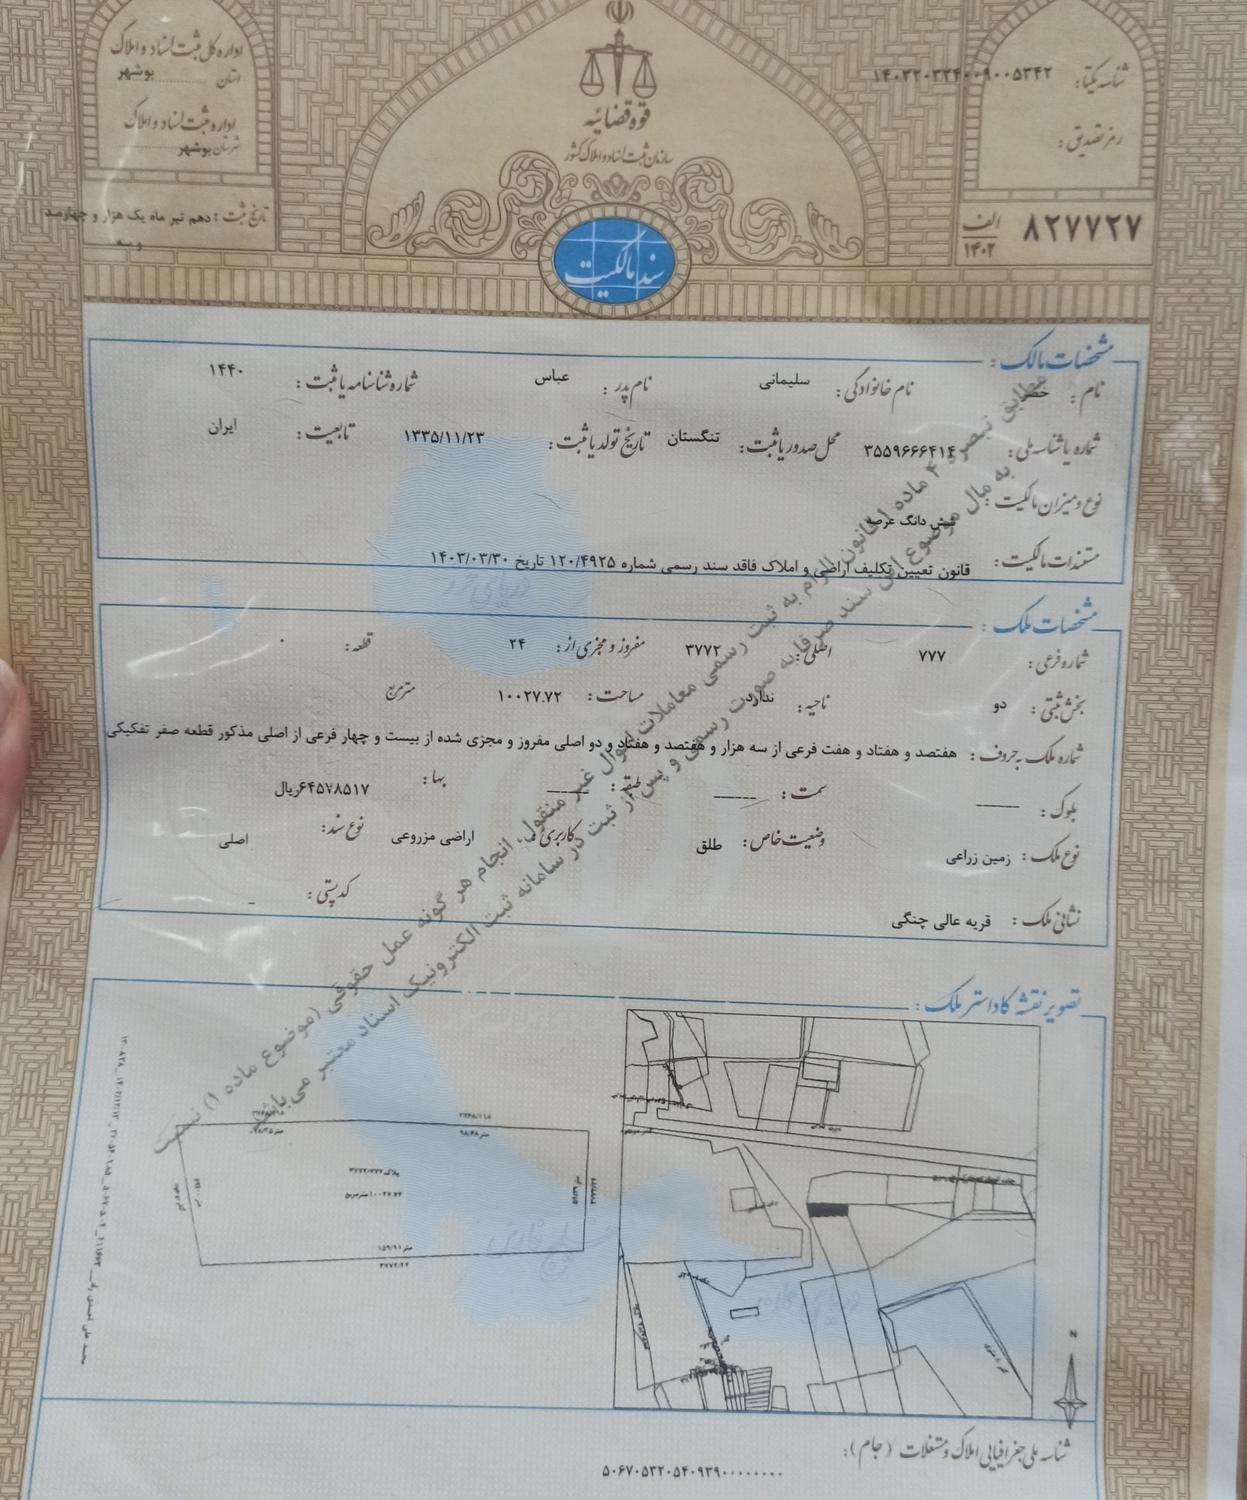 اداره کل ثبت اسناد و املاک
استان بوشهر
اداره ثبت اسناد و املاک
شهرستان بوشهر
تاریخ ثبت : دهم تیر ماه یک هزار و چهارصد
و سه
قوه قضائیه
سازمان ثبت اسناد و املاک کشور
سند مالکیت
شناسه یکتا: ۱۴۰۳۲۰۳۲۴۰۰۹۰۰۵۳۴۲
رمز تصدیق :
۸۲۷۷۲۷ الف ۱۴۰۲
مشخصات مالک :
نام : نام خانوادگی : سلیمانی نام پدر : عباس شماره شناسنامه یا ثبت : ۱۴۴۰
شماره یا شناسه ملی : ۳۵۵۹۶۶۶۴۱۴ محل صدور یا ثبت : تنگستان تاریخ تولد یا ثبت : ۱۳۳۵/۱۱/۲۳ تابعیت : ایران
نوع و میزان مالکیت : شش دانگ عرصه
مستندات مالکیت : قانون تعیین تکلیف اراضی و املاک فاقد سند رسمی شماره ۱۲۰/۴۹۲۵ تاریخ ۱۴۰۳/۰۳/۳۰
مشخصات ملک :
شماره فرعی : ۷۷۷ اصلی : ۳۷۷۲ مفروز و مجزی از : ۲۴ قطعه : ۰
بخش ثبتی : دو ناحیه : ندارد مساحت : ۱۰۰۲۷.۷۲ مترمربع
شماره ملک به حروف : هفتصد و هفتاد و هفت فرعی از سه هزار و هفتصد و هفتاد و دو اصلی مفروز و مجزی شده از بیست و چهار فرعی از اصلی مذکور قطعه صفر تفکیکی
بلوک : ------ سمت : ------ طبقه : ------ بها : ۶۴۵۷۸۵۱۷ریال
نوع ملک : زمین زراعی وضعیت خاص : طلق کاربری : اراضی مزروعی نوع سند : اصلی
نشانی ملک : قریه عالی چنگی کد پستی : -
مطابق تبصره ۴ ماده ۱ قانون الزام به ثبت رسمی معاملات اموال غیر منقول، انجام هر گونه عمل حقوقی (موضوع ماده ۱) نسبت
به مال موضوع این سند صرفا به صورت رسمی و پس از ثبت در سامانه ثبت الکترونیک اسناد معتبر می‌باشد
دریای خزر
تصویر نقشه کاداستر ملک :
پلاک ۳۷۷۲/۷۷۷
۱۰۰۲۷.۷۲ مترمربع
۱۵۹/۹۱ متر
۳۷۷۲/۲۴
خلیج فارس
دریای عمان
N
شناسه ملی جغرافیایی املاک و مستغلات (جام) :
۵۰۶۷۰۵۳۲۰۵۴۰۹۳۹۰۰۰۰۰۰۰۰